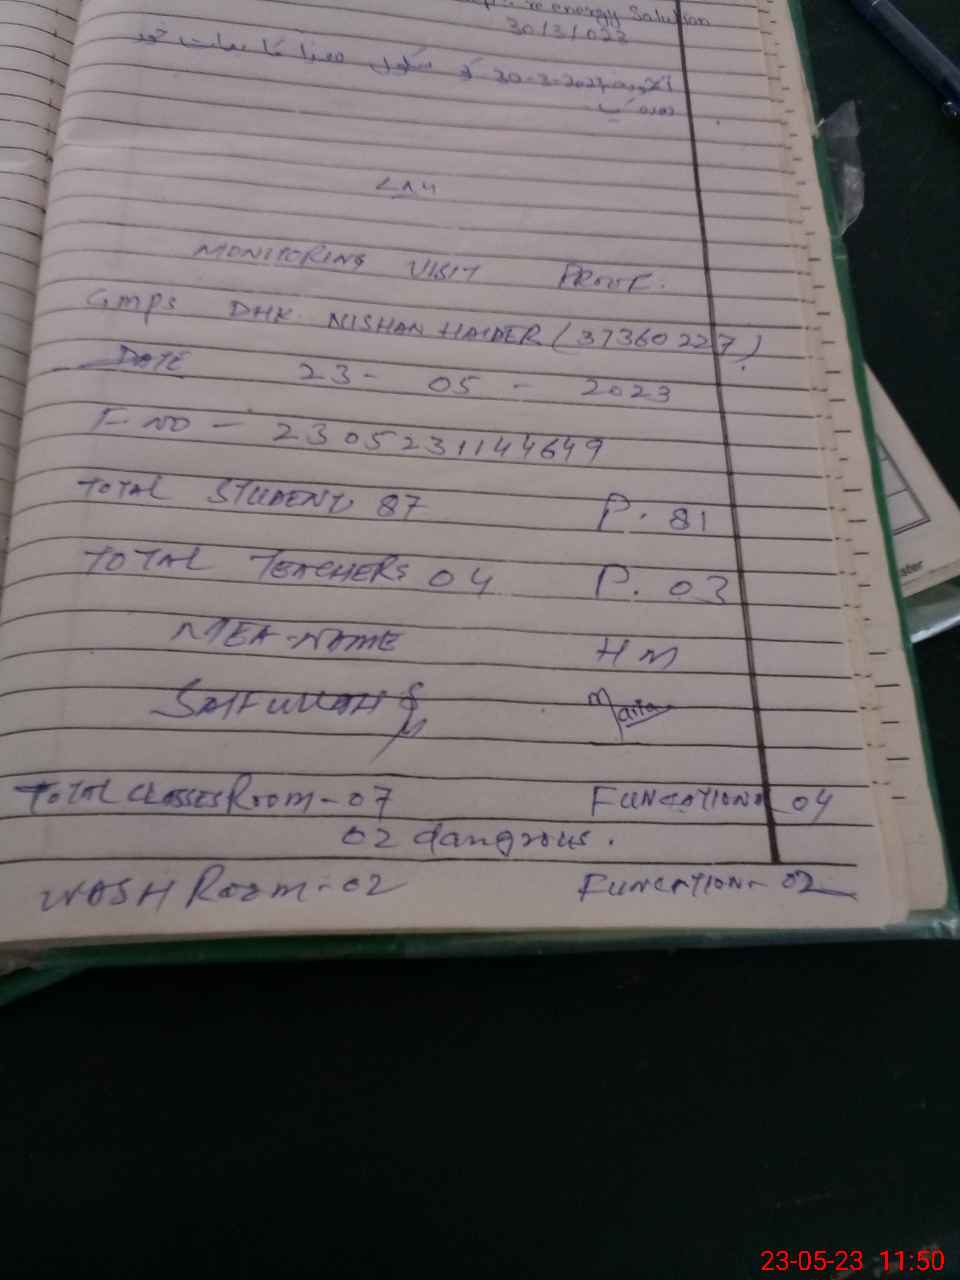 energy Solution
30/3/022
30-3-2022
MONITORING VISIT PROOF.
GMPS DHK. NISHAN HAIDER (37360227)
DATE 23- 05 - 2023
F-NO - 2305231144649
TOTAL STUDENTS 87 P. 81
TOTAL TEACHERS 04 P. 03
MEA-NAME HM
SAIFULLAH Maria
TOTAL CLASSES Room-07 FUNCATIONA 04
02 dangrous.
WASH Room-02 FUNCATIONA- 02
ster
23-05-23 11:50